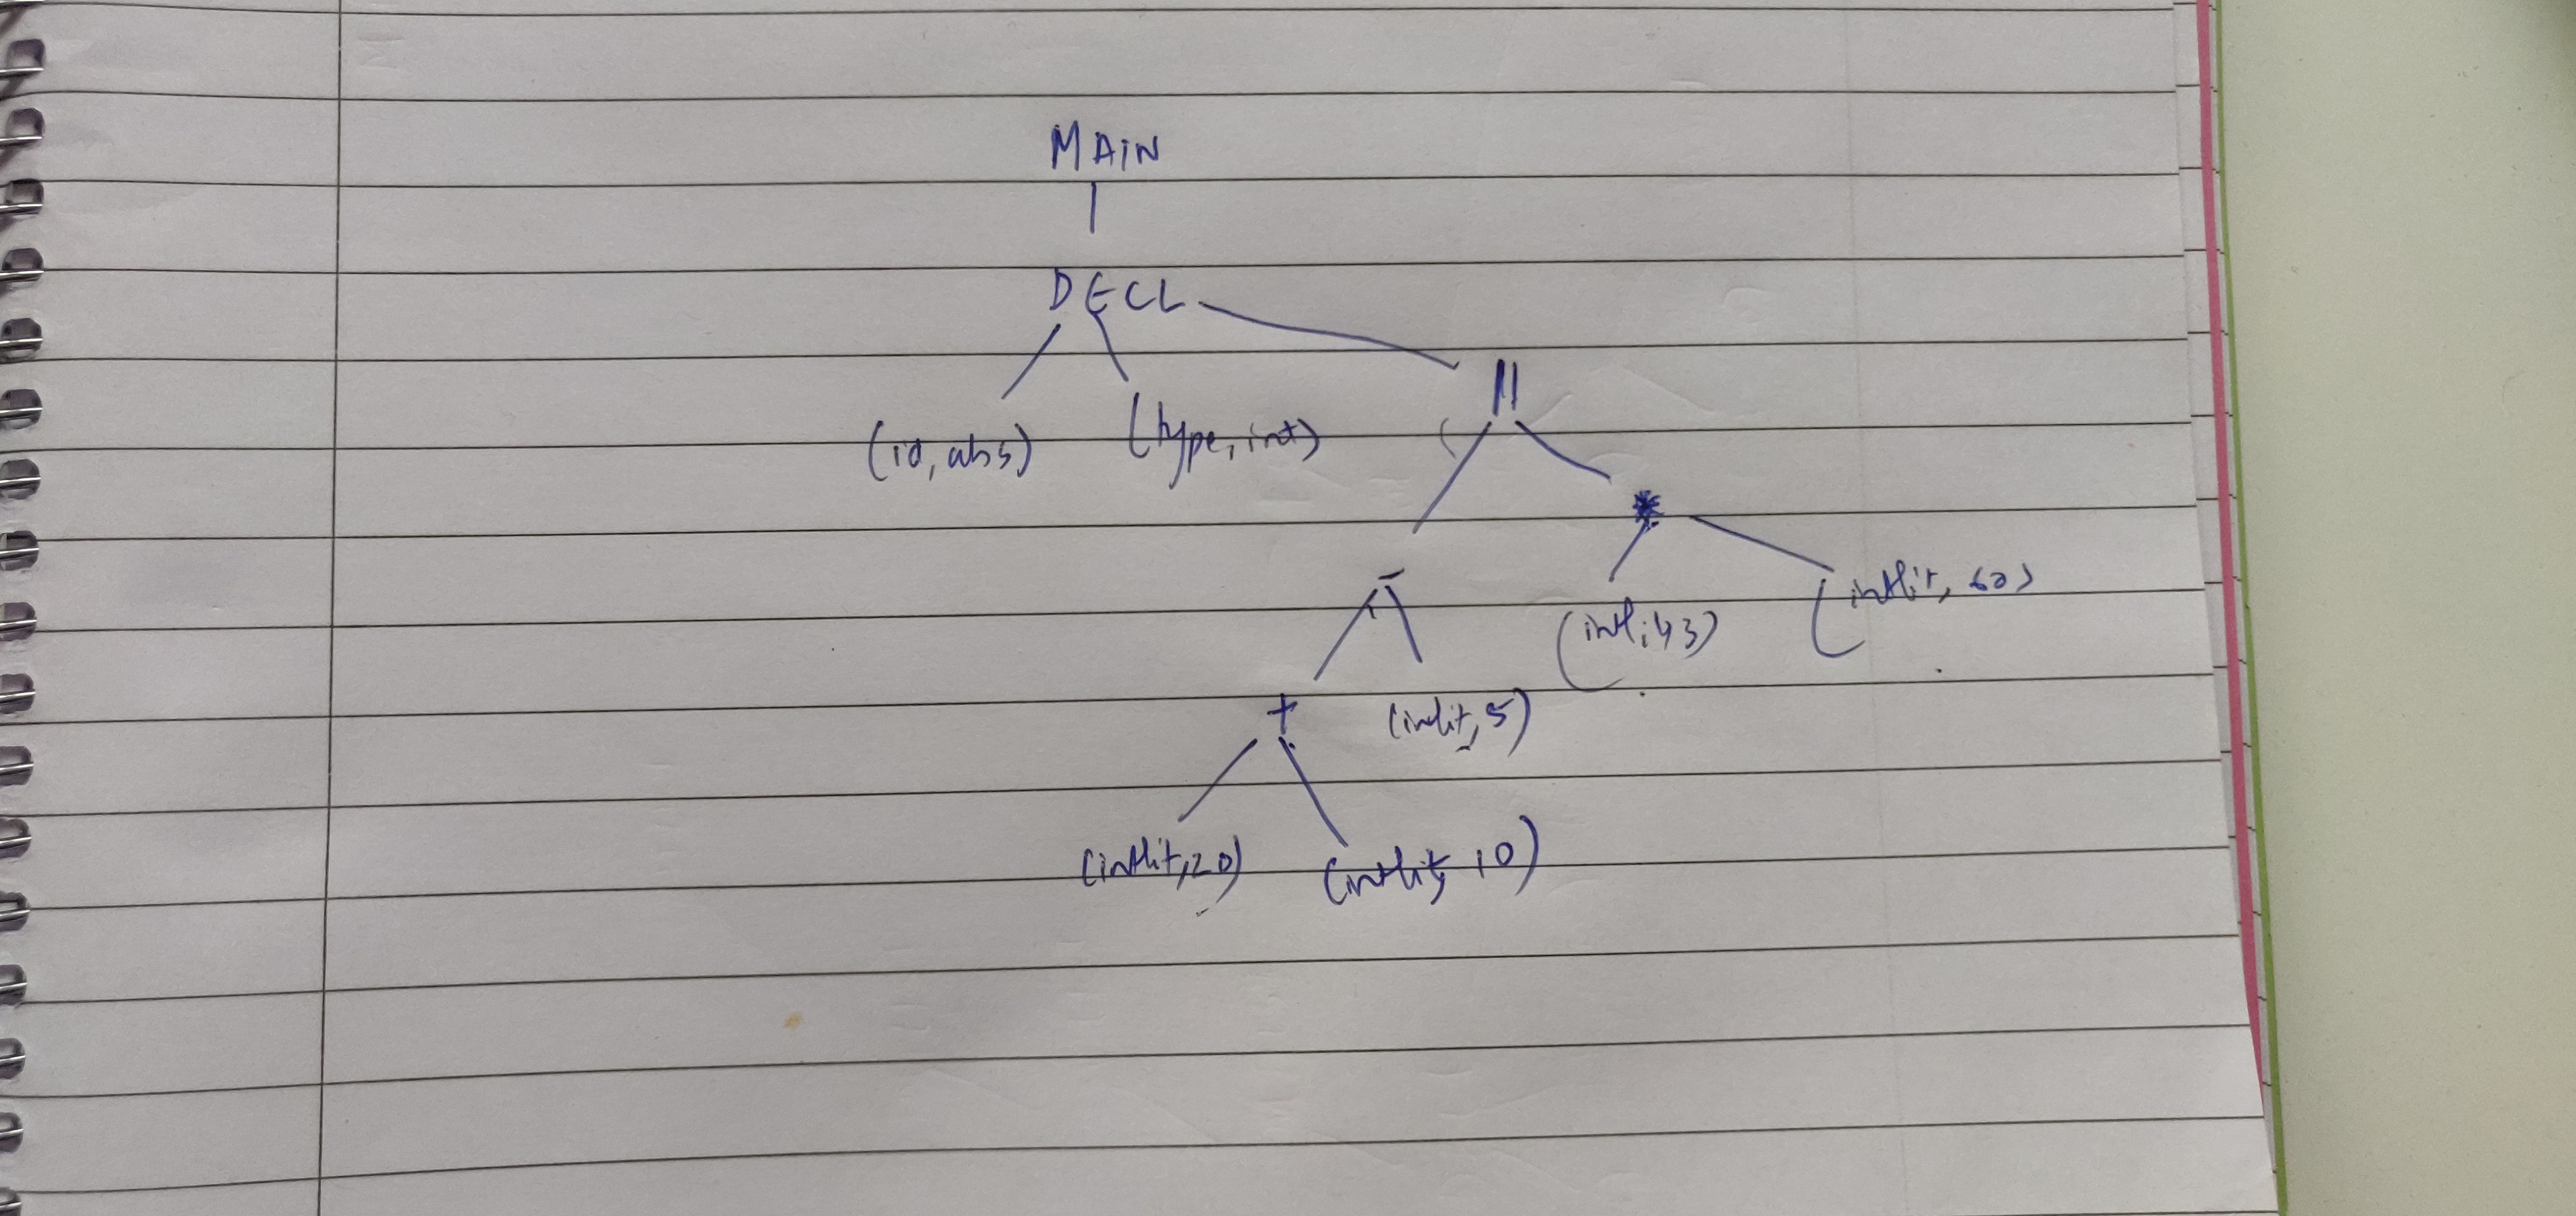 MAIN
DECL
||
(id, abs) (type, int)
*
-
(intlit, 60)
(intlit, 3)
+ (intlit, 5)
(intlit, 20) (intlit, 10)